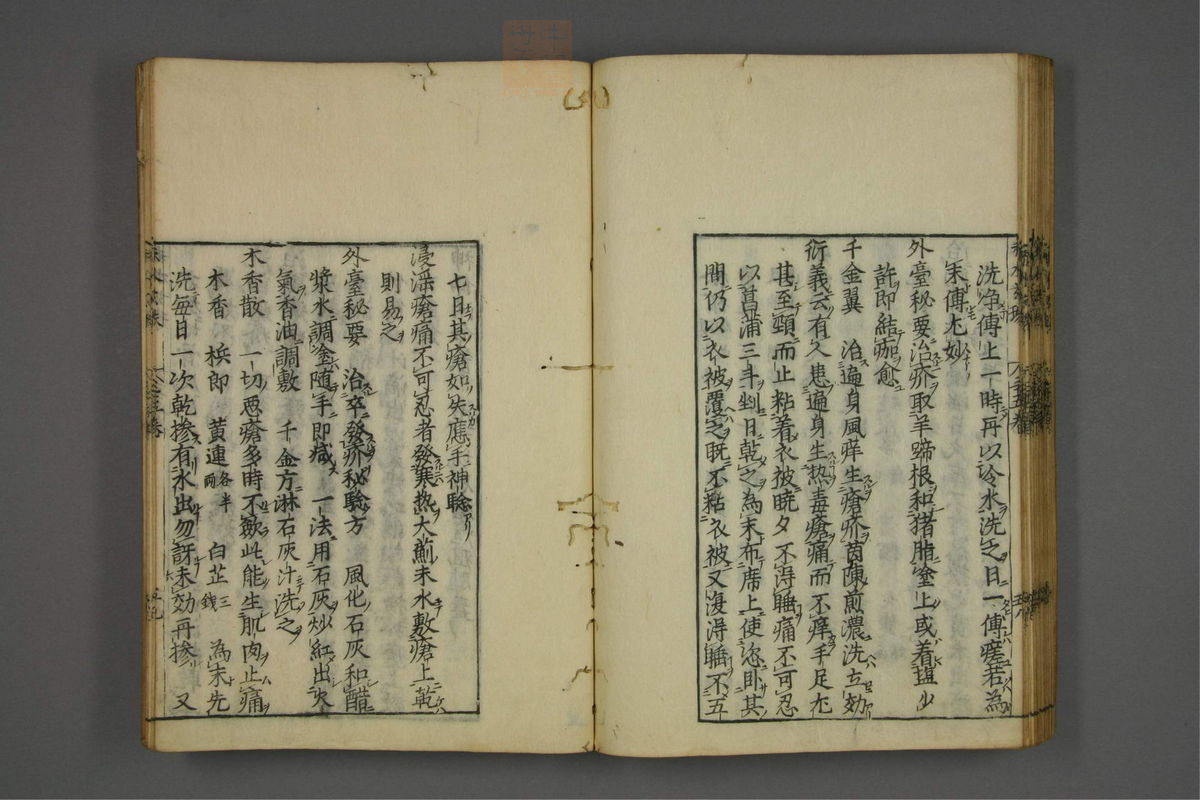 洗淨傅上一時再以冷水洗之日一傅瘥若為
末傅尤妙
外臺秘要治疥取羊蹄根和猪脂塗上或着塩少
許即結痂愈
千金翼 治遍身風痒生瘡疥茵陳煎濃洗立効
衍義云有人患遍身生熱毒瘡痛而不痒手足尤
甚至頸而止粘着衣被暁夕不淂睡痛不可忍
以菖蒲三斗剉日乾之為末布席上使恣卧其
間仍以衣被覆之旣不粘衣被又復淂睡不五
七日其瘡如失應手神驗
浸滛瘡痛不可忍者發寒熱大薊末水敷瘡上乾
則易之
外臺秘要 治卒發疥秘驗方 風化石灰和醋
漿水調塗随手即减 一法用石灰炒紅出火
氣香油調敷 千金方淋石灰汁洗之
木香散 一切悪瘡多時不歛此能生肌肉止痛
木香 梹郎 黄連各半兩 白芷三錢 為末先
洗毎日一次乾摻有水出勿訝未効再摻 又